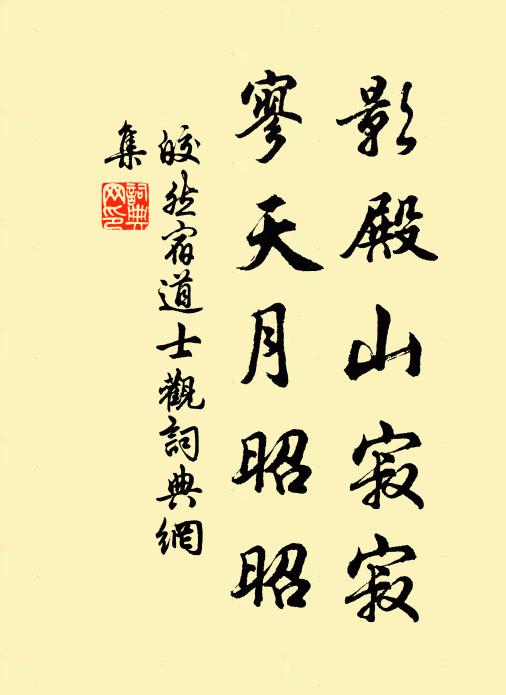 影殿山寂寂
寥天月昭昭
皎然宿道士觀詞典網
集
詞典
网印